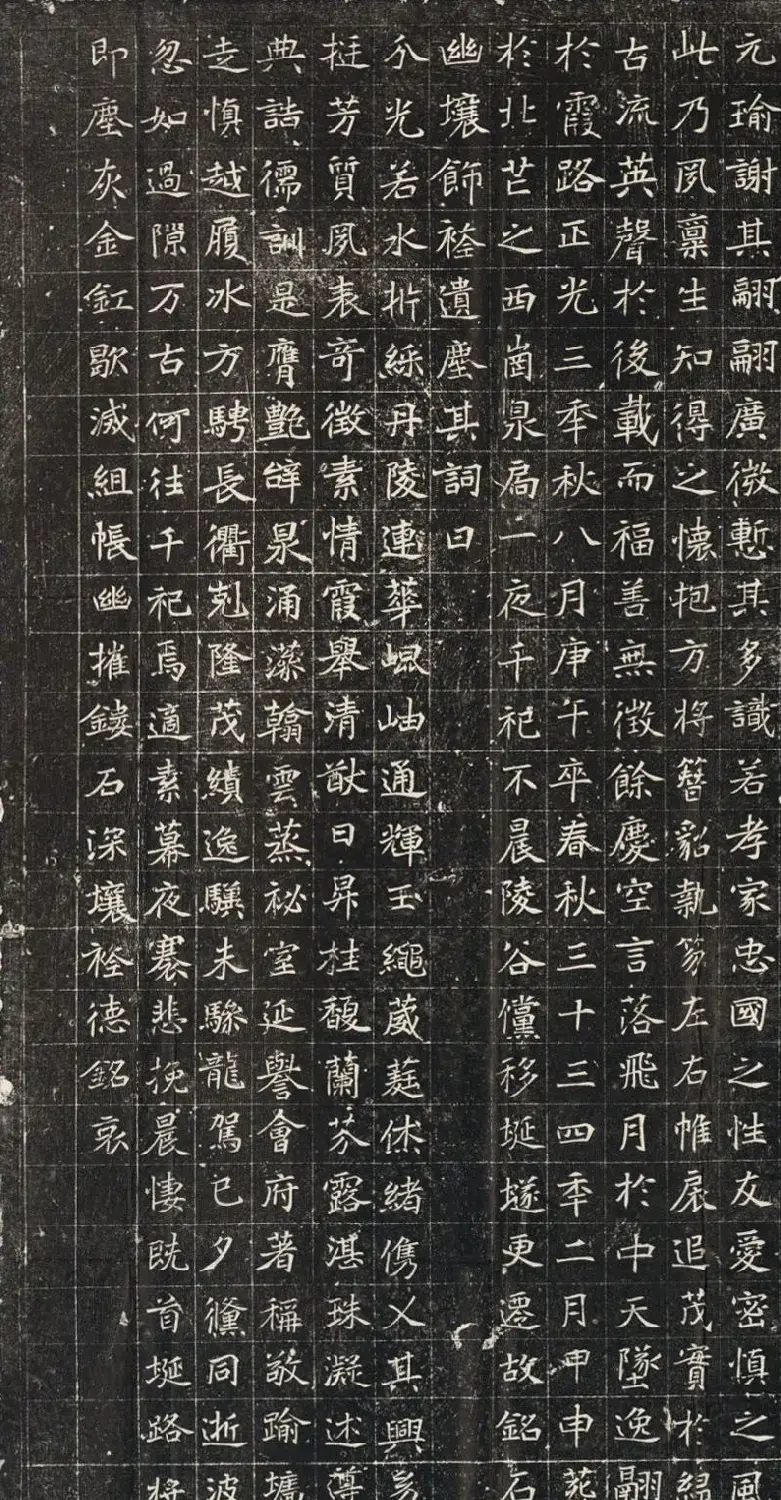 元瑜謝其翩翩廣微慙其多識若孝家忠國之性友愛密慎之風
此乃夙稟生知得之懷抱方將簪貂執笏左右帷扆追茂實於綿
古流英聲於後載而福善無徵餘慶空言落飛月於中天墜逸翮
於霞路正光三秊秋八月庚午卒春秋三十三四秊二月甲申
於北芒之西崗泉扃一夜千祀不晨陵谷儻移埏埏更遷故銘石
幽壤飾裕遺塵其詞曰
分光若水析綵丹陵連華崐岫通輝玉繩葳蕤休緒儁乂其興
挺芳質夙表奇徵素情霞舉清猷日昇桂馥蘭芬露湛珠凝述尊
典誥儒訓是膺艷辞泉涌藻翰雲蒸祕室延譽會府著稱敬踰
走慎越履冰方騁長衢剋隆茂績逸驥未驂龍駕已夕儵同逝波
忽如過隙万古何往千祀焉適素幕夜褰悲挽晨悽既首埏路將
即塵灰金釭歇滅組帳幽摧鏤石深壤裕德銘哀